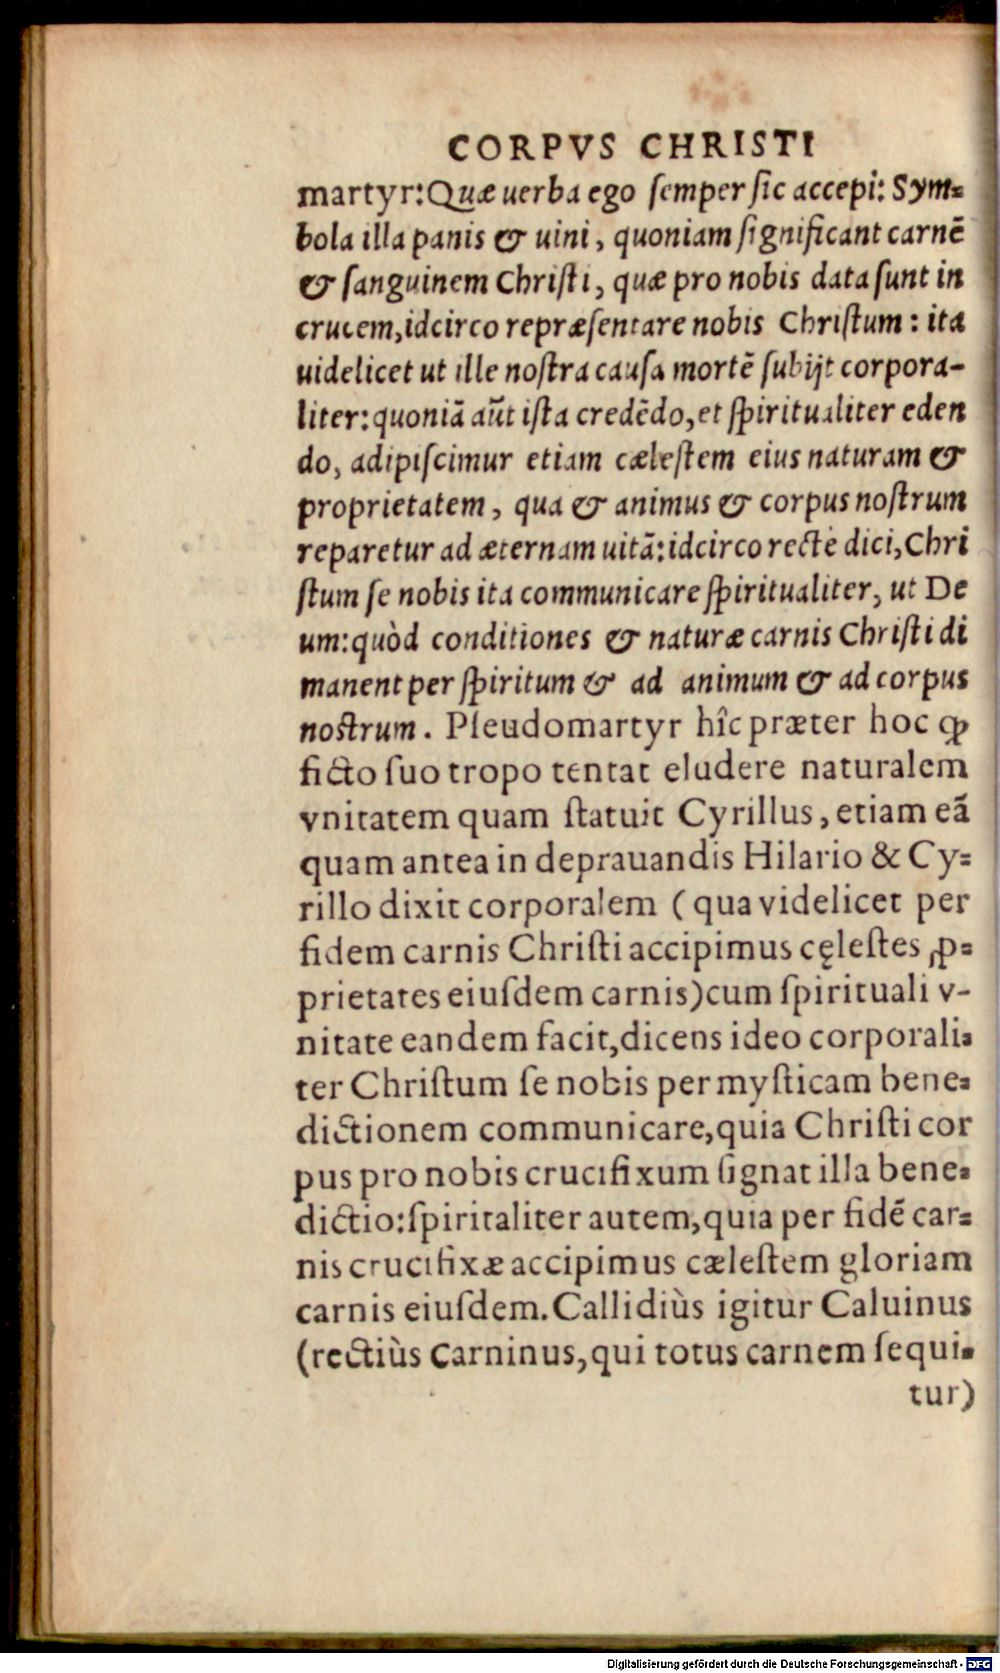 CORPVS CHRISTI
martyr: Quæ uerba ego ſemper ſic accepi: Sym⸗
bola illa panis & uini, quoniam ſignificant carnē
& ſanguinem Chriſti, quæ pro nobis data ſunt in
crucem, idcirco repræſentare nobis Chriſtum: ita
uidelicet ut ille noſtra cauſa mortē ſubijt corpora-
liter: quoniā aūt iſta credēdo, et ſpiritualiter eden
do, adipiſcimur etiam cæleſtem eius naturam &
proprietatem, qua & animus & corpus noſtrum
reparetur ad æternam uitā: idcirco rectè dici, Chri
ſtum ſe nobis ita communicare ſpiritualiter, ut De
um: quòd conditiones & naturæ carnis Chriſti di
manent per ſpiritum & ad animum & ad corpus
noſtrum. Pſeudomartyr hîc præter hoc ꝙ
ficto ſuo tropo tentat eludere naturalem
vnitatem quam ſtatuit Cyrillus, etiam eā
quam antea in deprauandis Hilario & Cy⸗
rillo dixit corporalem (qua videlicet per
fidem carnis Chriſti accipimus cęleſtes ꝓ⸗
prietates eiuſdem carnis) cum ſpirituali v-
nitate eandem facit, dicens ideo corporali⸗
ter Chriſtum ſe nobis per myſticam bene⸗
dictionem communicare, quia Chriſti cor
pus pro nobis crucifixum ſignat illa bene⸗
dictio: ſpiritaliter autem, quia per fidē car⸗
nis crucifixæ accipimus cæleſtem gloriam
carnis eiuſdem. Callidiùs igitur Caluinus
(rectiùs Carninus, qui totus carnem ſequi⸗
tur)
Digitalisierung gefördert durch die Deutsche Forschungsgemeinschaft - DFG